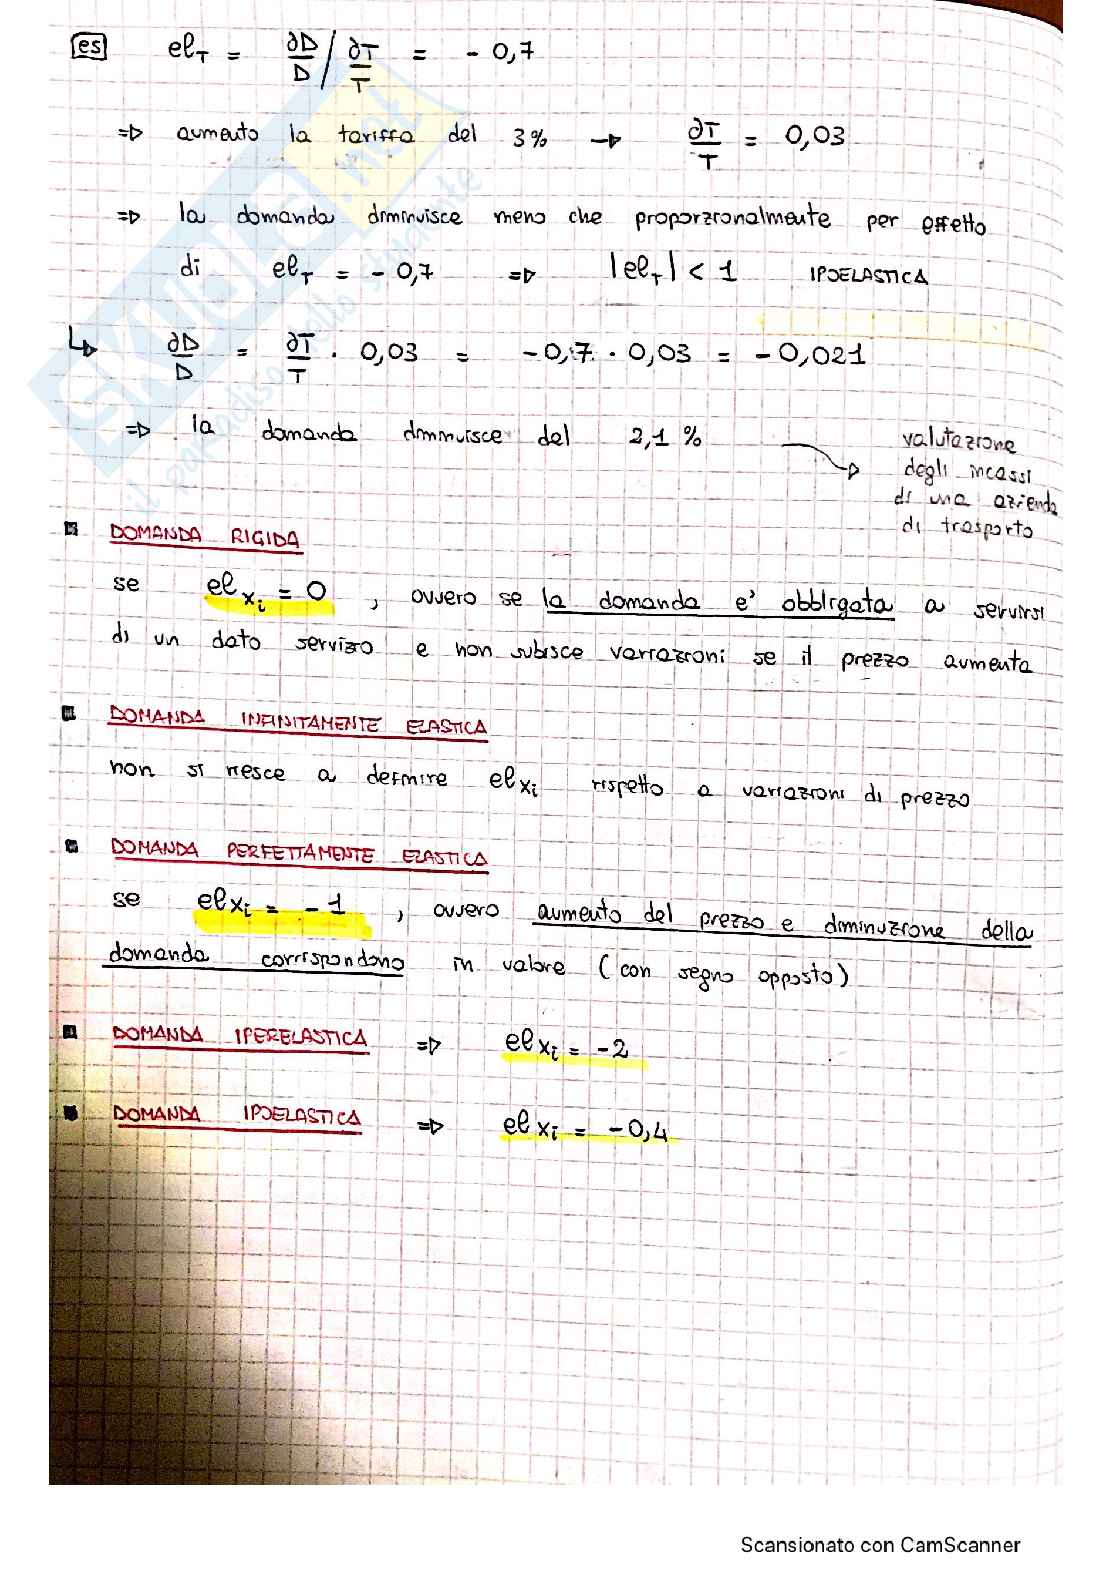 es el_T = ∂D/D / ∂T/T = - 0,7
⇒ aumento la tariffa del 3% → ∂T/T = 0,03
⇒ la domanda diminuisce meno che proporzionalmente per effetto
di el_T = - 0,7 ⇒ |el_T| < 1 IPOELASTICA
↳ ∂D/D = ∂T/T · 0,03 = -0,7 · 0,03 = -0,021
⇒ la domanda diminuisce del 2,1 % → valutazione
degli incassi
di una azienda
di trasporto
DOMANDA RIGIDA
se el_xi = 0 , ovvero se la domanda e' obbligata a servirsi
di un dato servizio e non subisce variazioni se il prezzo aumenta
DOMANDA INFINITAMENTE ELASTICA
non si riesce a definire el_xi rispetto a variazioni di prezzo
DOMANDA PERFETTAMENTE ELASTICA
se el_xi = - 1 , ovvero aumento del prezzo e diminuzione della
domanda corrispondono in valore (con segno opposto)
DOMANDA IPERELASTICA ⇒ el_xi = -2
DOMANDA IPOELASTICA ⇒ el_xi = -0,4
SKUOLA.net
il paradiso dello studente
Scansionato con CamScanner